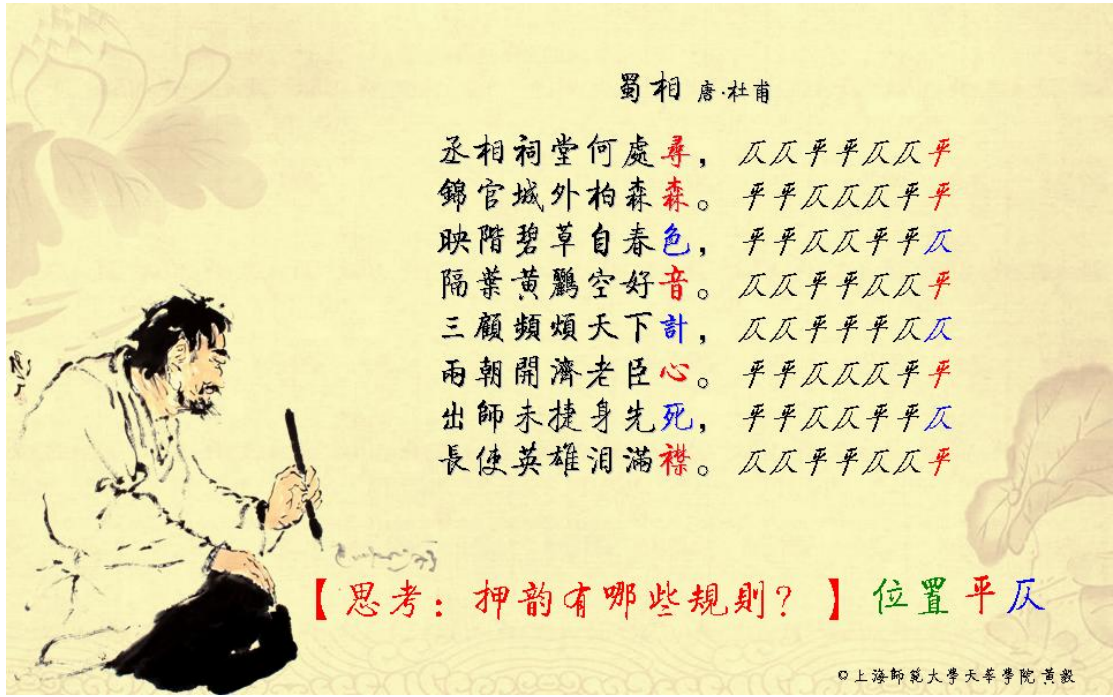 蜀相 唐·杜甫
丞相祠堂何處尋，仄仄平平仄仄平
錦官城外柏森森。平平仄仄仄平平
映階碧草自春色，平平仄仄平平仄
隔葉黃鸝空好音。仄仄平平仄仄平
三顧頻煩天下計，仄仄平平平仄仄
兩朝開濟老臣心。平平仄仄仄平平
出師未捷身先死，平平仄仄平平仄
長使英雄泪滿襟。仄仄平平仄仄平
【思考：押韵有哪些規則？】位置平仄
©上海師範大學天華學院 黃毅